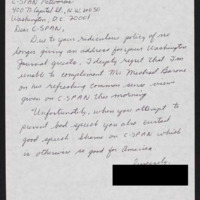 C-SPAN Networks
400 N Capitol St., N.W. #650
Washington, D.C. 20001
Dear C-SPAN,
Due to your ridiculous policy of no
longer giving an address for your Washington
Journal guests, I deeply regret that I am
unable to complement Mr. Michael Barone
on his refreshing common sense view
given on C-SPAN this morning.
Unfortunately, when you attempt to
prevent bad speech you also curtail
good speech. Shame on C-SPAN which
is otherwise so good for America
Sincerely,